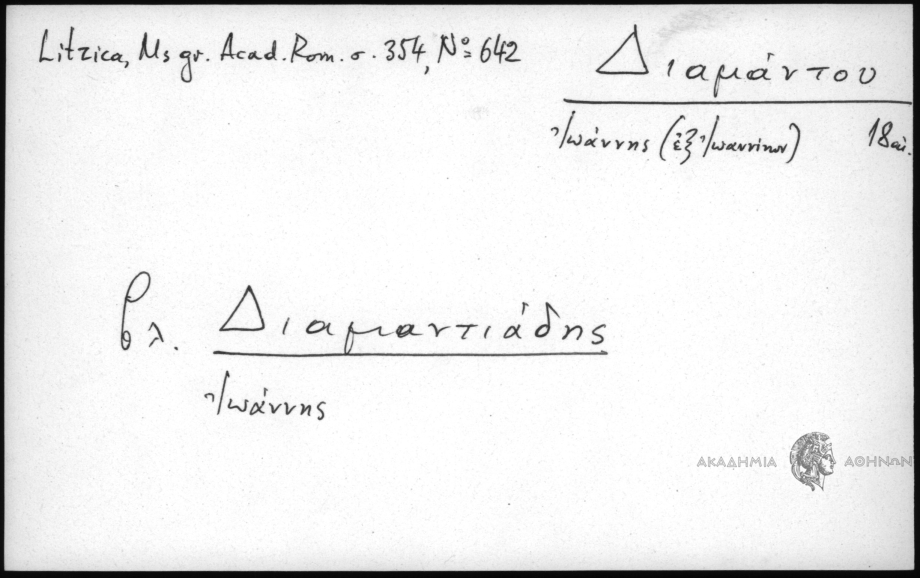 Litzica, Ms gr. Acad. Rom. σ. 354, Nº 642
Διαμάντου
Ἰωάννης (ἐξ Ἰωαννίνων) 18 αἰ.
βλ. Διαμαντιάδης
Ἰωάννης
ΑΚΑΔΗΜΙΑ ΑΘΗΝΩΝ